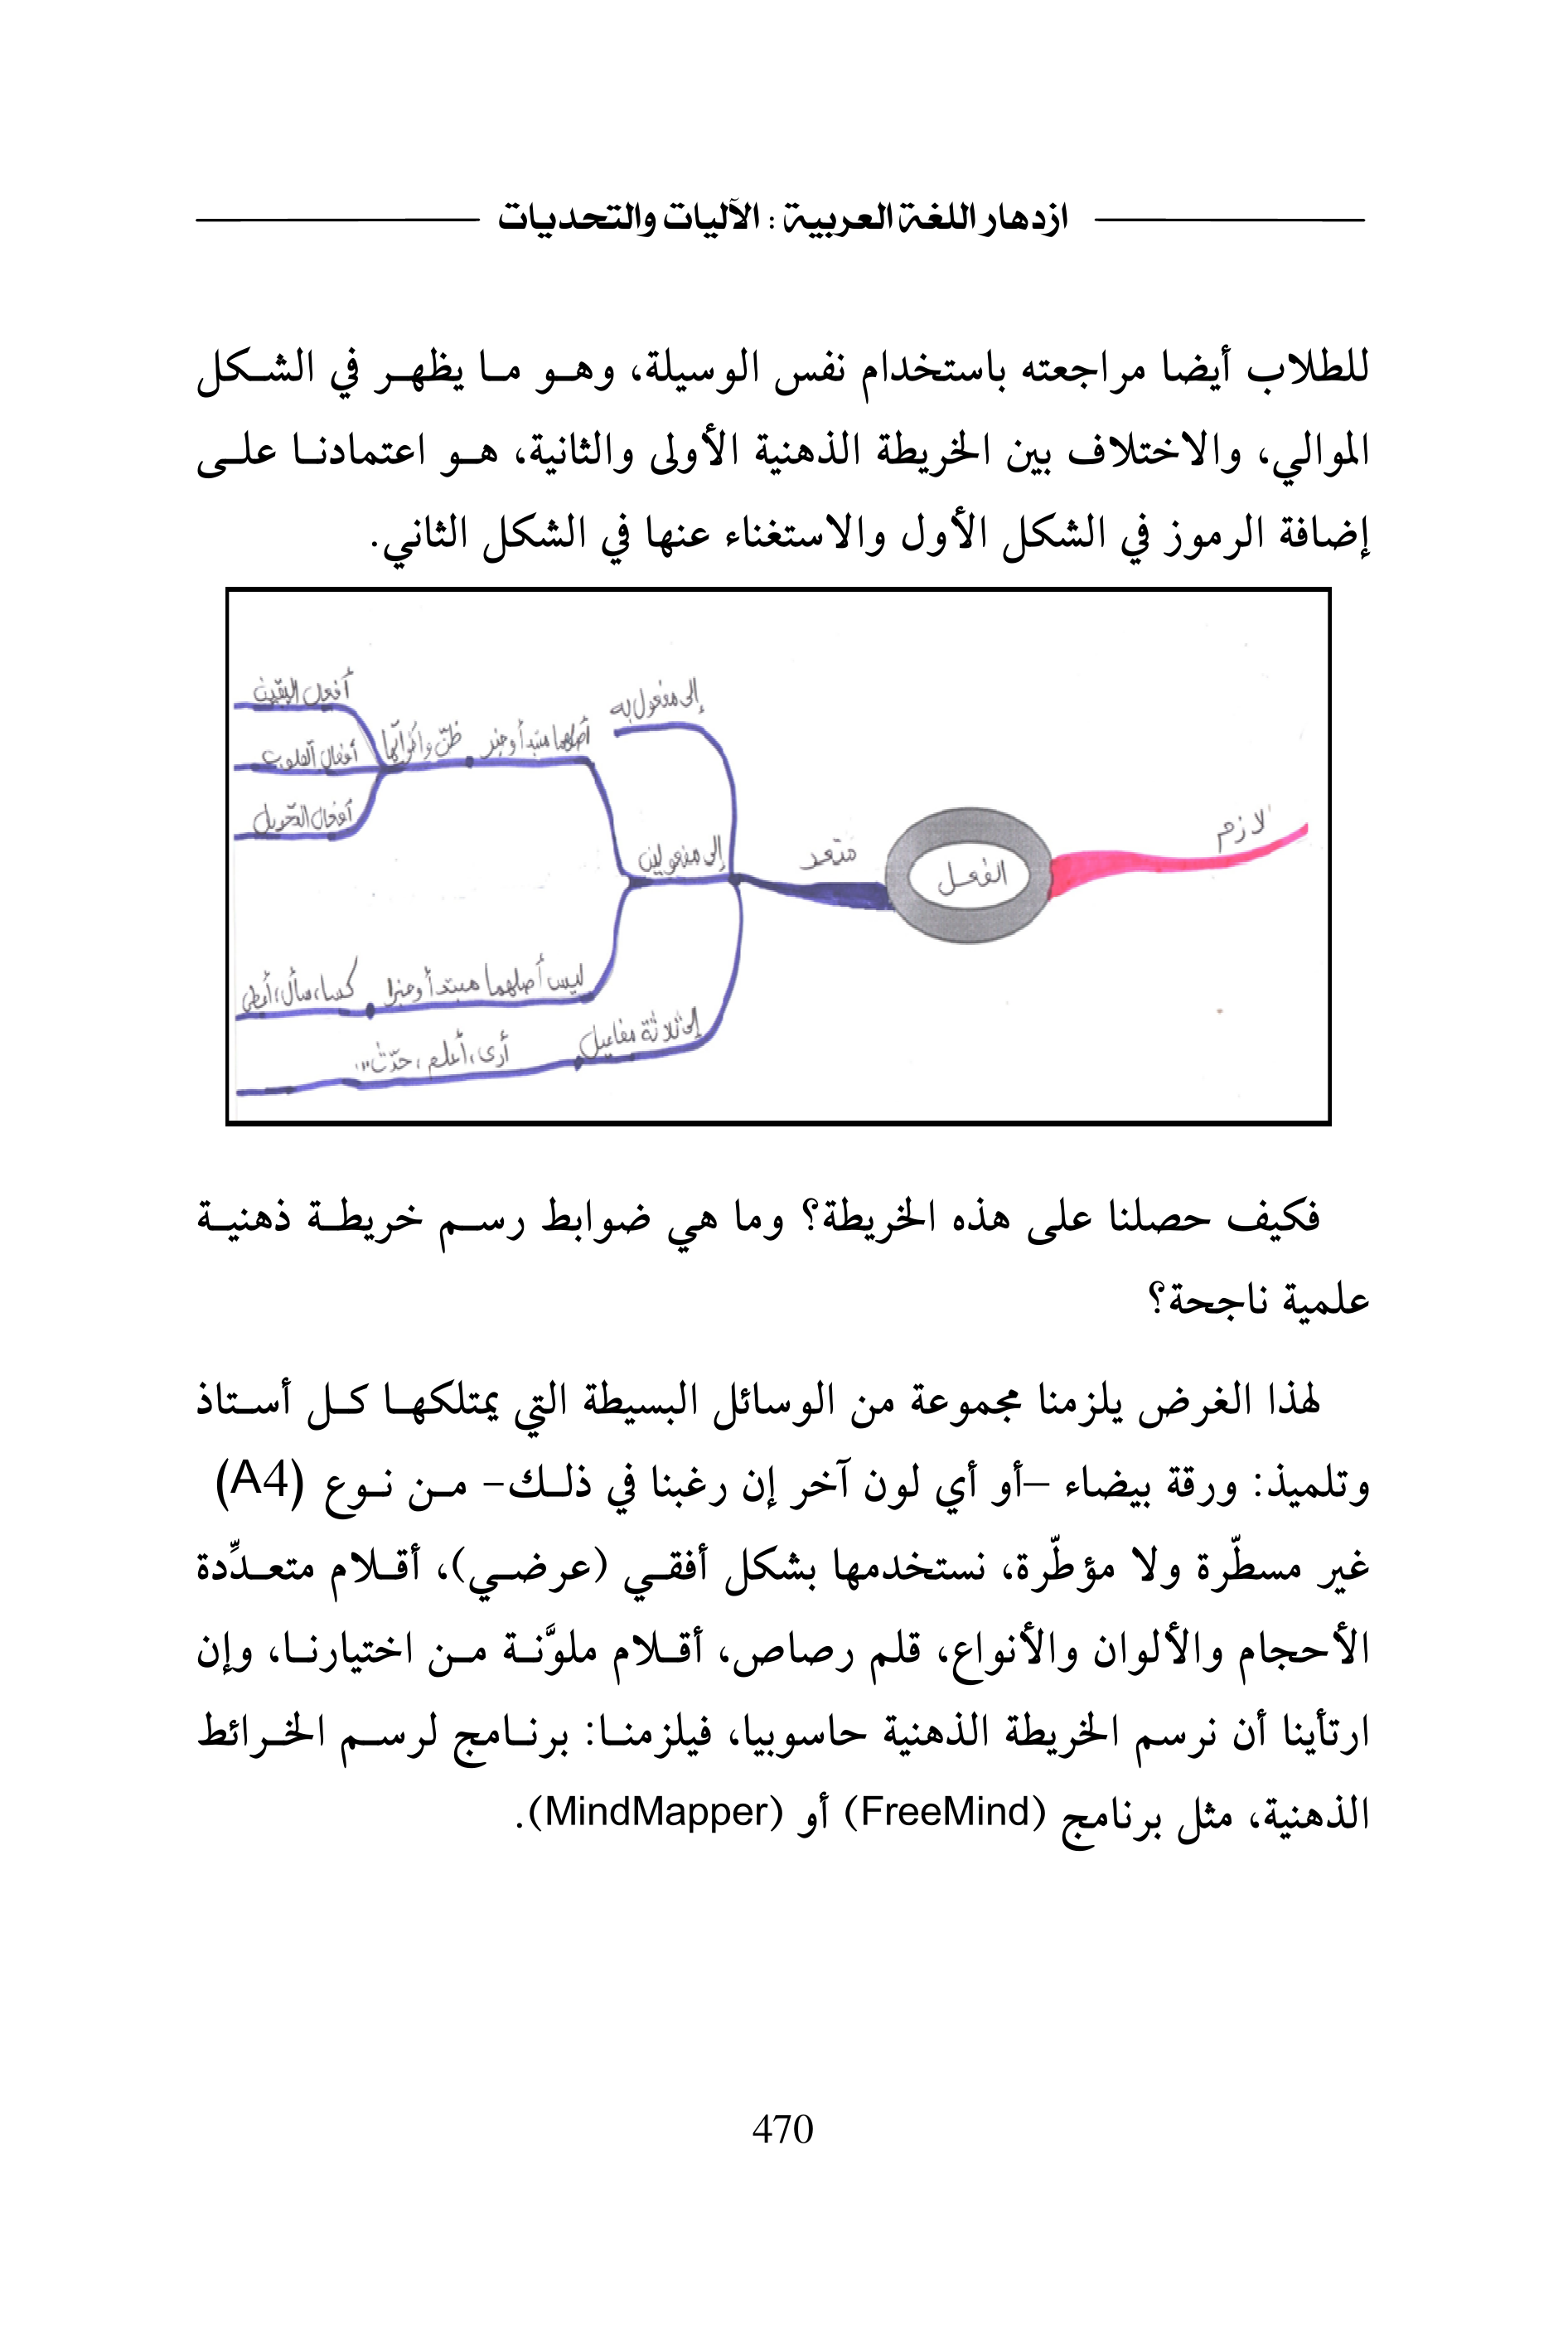 ازدهار اللغة العربية : الآليات والتحديات
للطلاب أيضا مراجعته باستخدام نفس الوسيلة، وهو ما يظهر في الشكل
الموالي، والاختلاف بين الخريطة الذهنية الأولى والثانية، هو اعتمادنا على
إضافة الرموز في الشكل الأول والاستغناء عنها في الشكل الثاني.
لازم
الفعل
متعد
إلى مفعول به
إلى مفعولين
أصلهما مبتدأ وخبر
ظنّ وأخواتها
أفعل اليقين
أفعال القلوب
أفعال التحويل
ليس أصلهما مبتدأ وخبرا
كسا، سأل، أعطى
إلى ثلاثة مفاعيل
أرى، أعلم، حدّث...
فكيف حصلنا على هذه الخريطة؟ وما هي ضوابط رسم خريطة ذهنية
علمية ناجحة؟
لهذا الغرض يلزمنا مجموعة من الوسائل البسيطة التي يمتلكها كل أستاذ
وتلميذ: ورقة بيضاء –أو أي لون آخر إن رغبنا في ذلك- من نوع (A4)
غير مسطّرة ولا مؤطّرة، نستخدمها بشكل أفقي (عرضي)، أقلام متعدِّدة
الأحجام والألوان والأنواع، قلم رصاص، أقلام ملوَّنة من اختيارنا، وإن
ارتأينا أن نرسم الخريطة الذهنية حاسوبيا، فيلزمنا: برنامج لرسم الخرائط
الذهنية، مثل برنامج (FreeMind) أو (MindMapper).
470